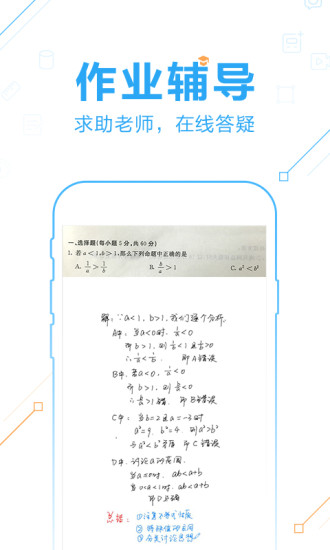 作业辅导
求助老师，在线答疑
一、选择题(每小题5分,共60分)
1. 若a<1,b>1,那么下列命题中正确的是
A. 1/a>1/b B. b/a>1 C. a²<b²
解: ∵a<1, b>1, 我们逐个分析.
A中: 当a<0时, 1/a<0
而b>1, 则1/b<1且1/b>0
∴1/a<1/b. 即A错误
B中. 若a<0, 1/a<0
而b>1, 则b/a<0
∴b/a>1错. 即B错误
C中: 当b=2且a=-3时
a²=9, b²=4 则a²>b²
与a²<b²矛盾 即C错误
D中. 讨论a的范围.
当a≤0时. ab<a+b
当0<a<1时. ab<a+b
即D正确
总结: ①注意不等式性质
②特殊值的应用
③分类讨论思想